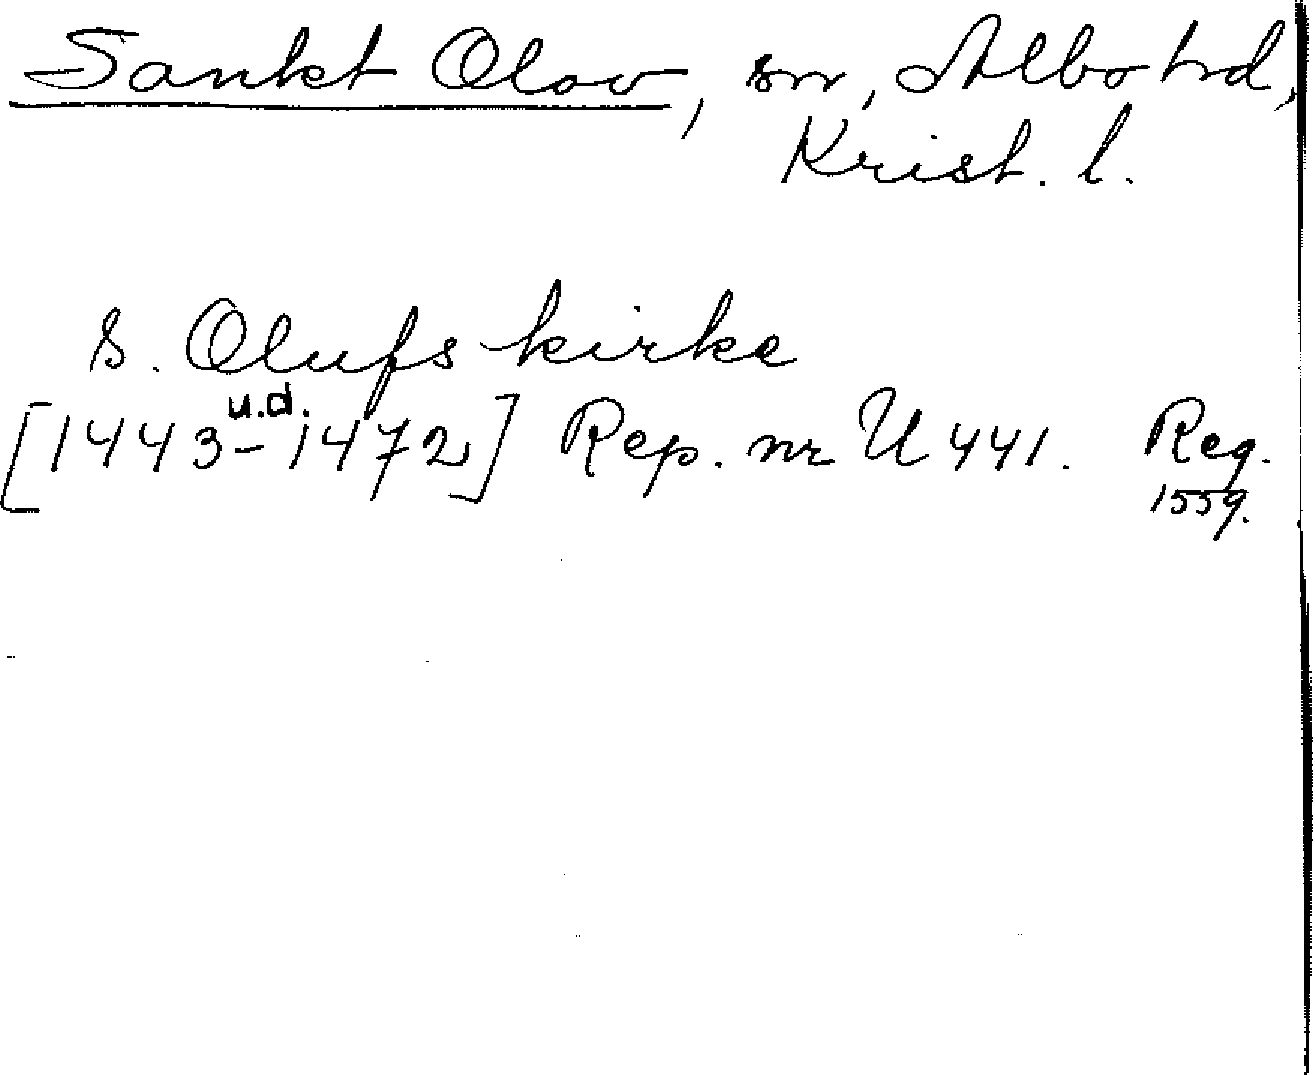 Sankt Olov, sn, Albo hd,
Krist. l.
S. Olufs kirke
u.d.
[1443-1472] Rep. nr U 441. Reg.
1559.